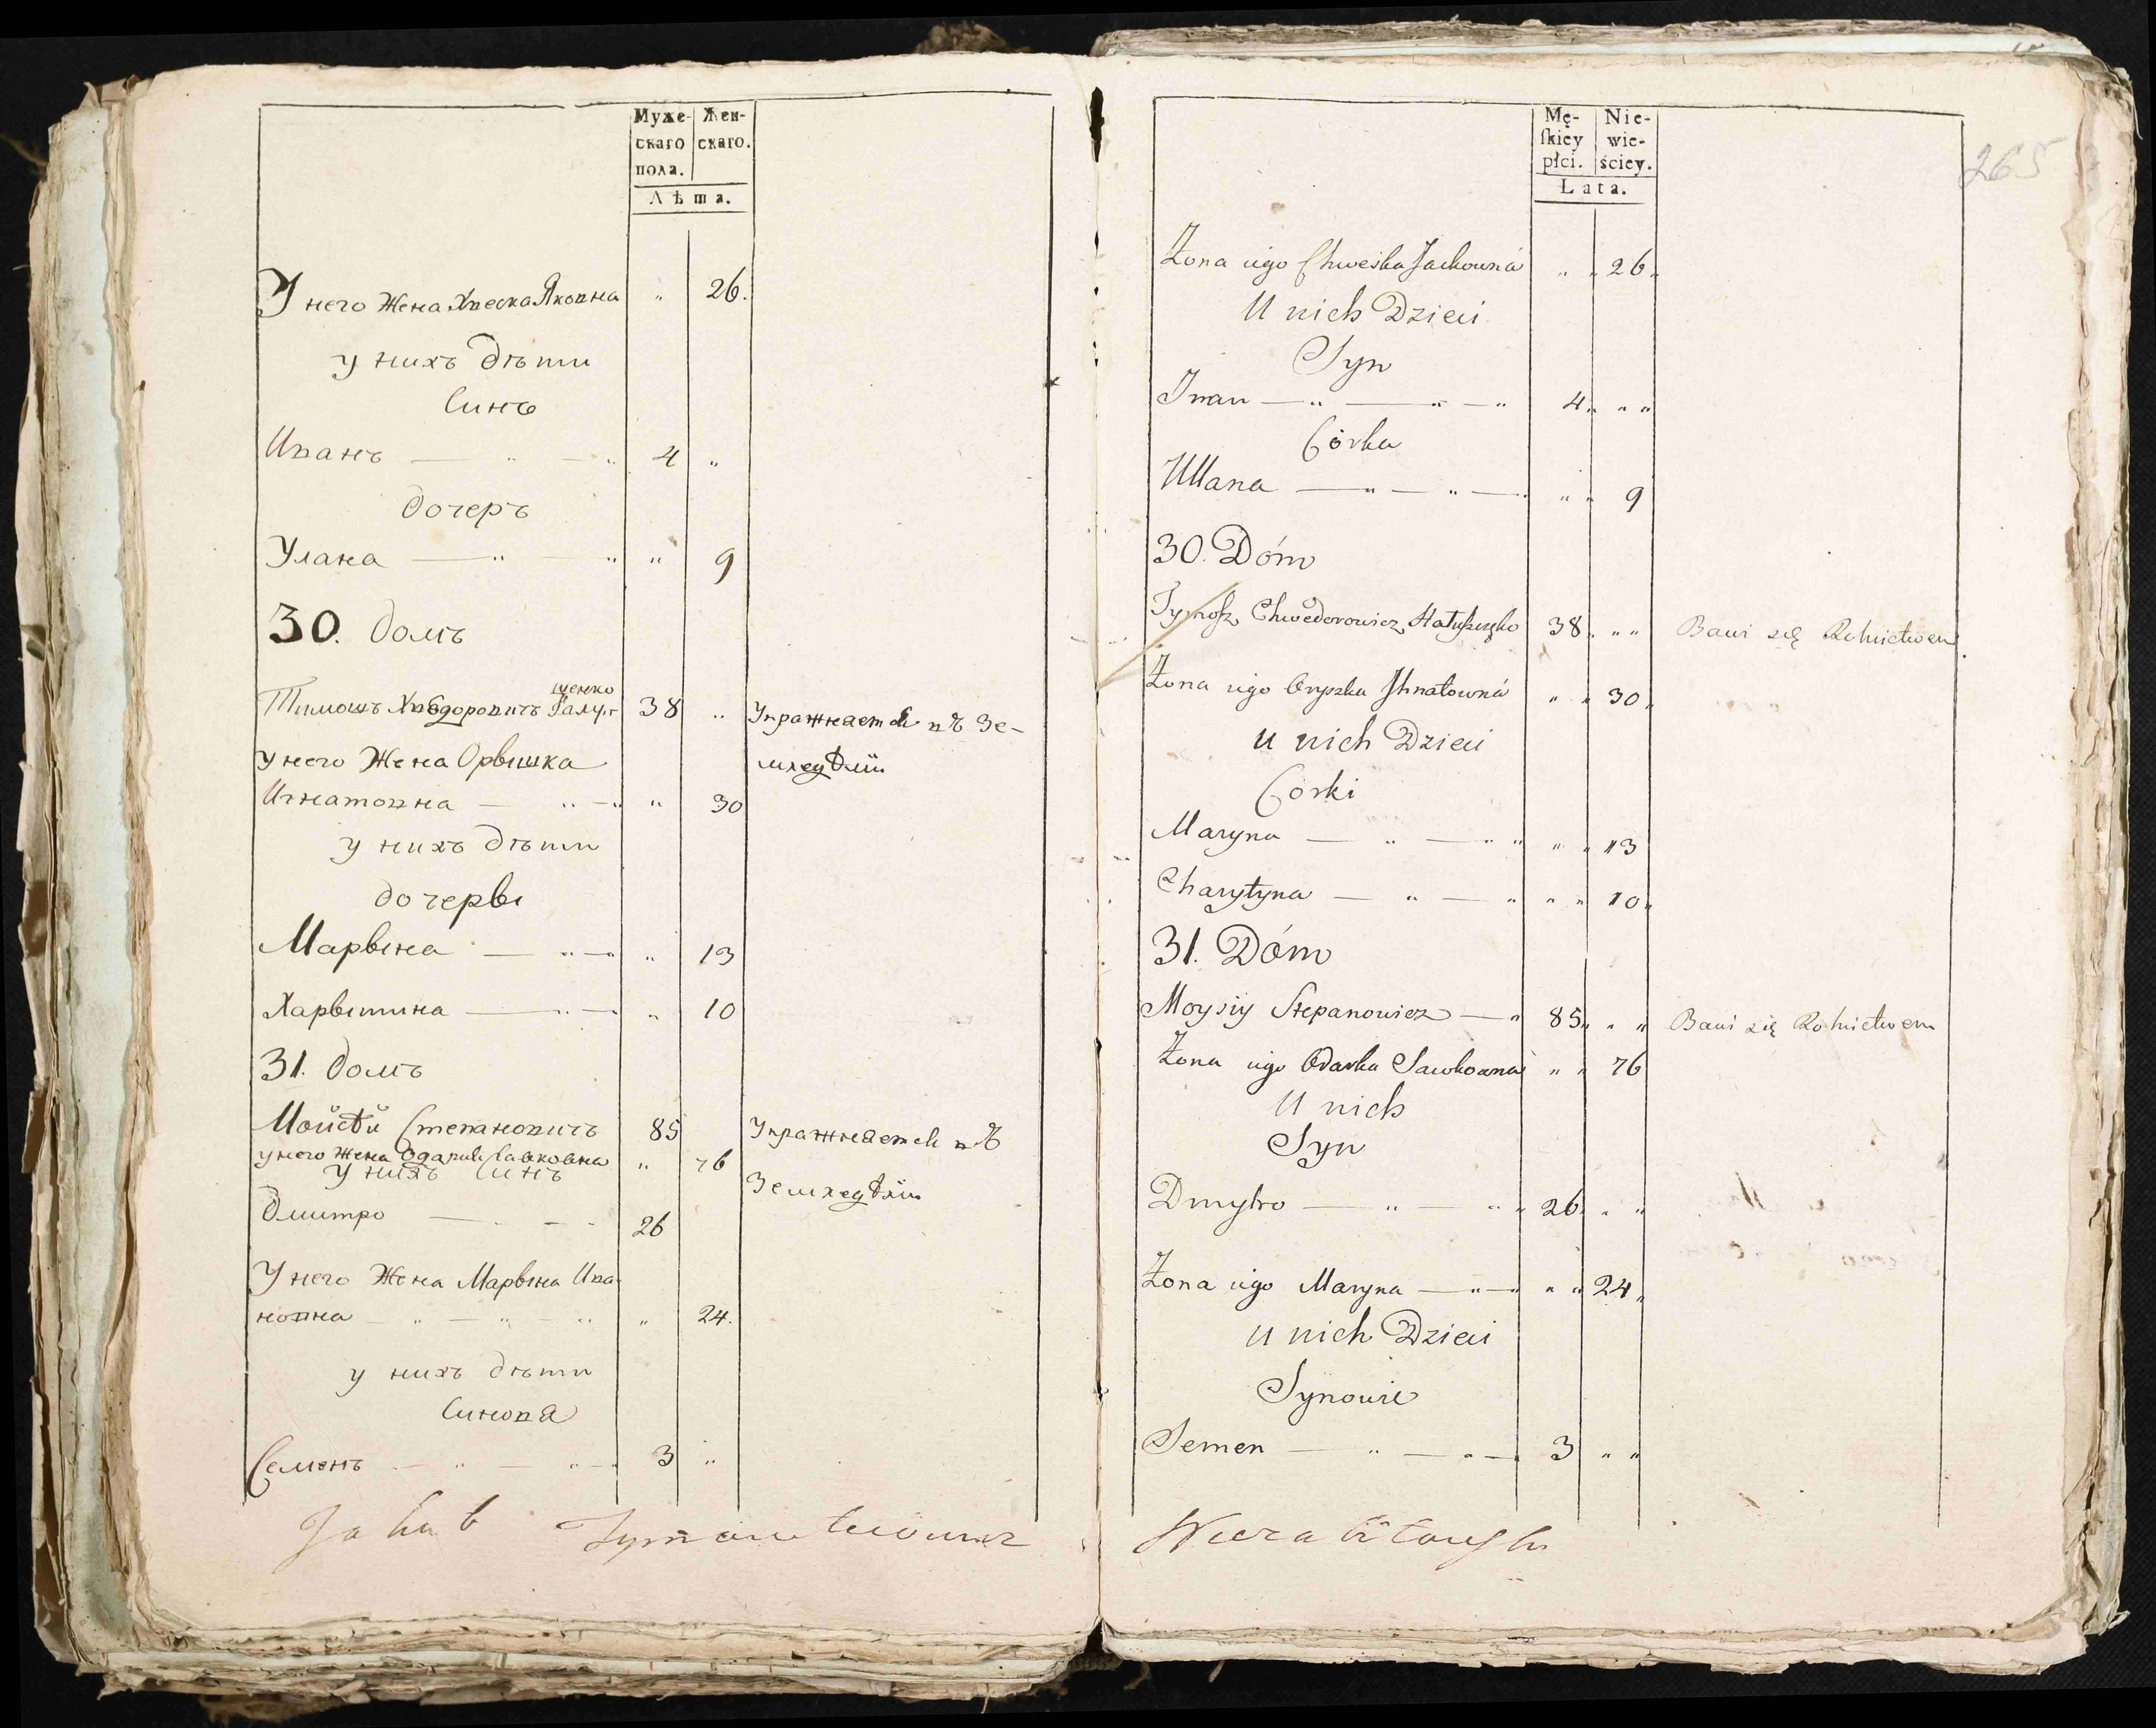 Муже- Жен-
скаго скаго.
пола.
Лѣта.
У него Жена Хвеска Яковна " 26.
у нихъ дѣти
Синъ
Иванъ — " — " 4 "
дочеръ
Улана — " — " " 9
30. домъ
щенко
Тимошъ Хведоровичъ Галу- 38 " Упражняется въ Зе-
у него Жена Орышка мледѣлїи
Игнатовна — " — " " 30
у нихъ дѣти
дочеры
Марына — " — " " 13
Харытина — " — " 10
31. домъ
Мойсѣй Степановичъ 85 Упражняется въ
у него Жена Одарка Савковна " 76
у нихъ Синъ Земледѣлїи
Дмитро — " — " 26
У него Жена Марына Ива-
новна — " — " — " " 24.
у нихъ дѣти
Синова
Семенъ — " — " — 3 "
Jakub Szymanowicz
Mę- Nie-
ſkiey wie-
płci. ściey.
Lata.
265
Żona iego Chweśka Jackowná " " 26"
U nich Dzieci
Syn
Iwan — " — " — " 4" " "
Córka
Ulłana — " — " — " " 9
30. Dóm
Tymosz Chwedorowicz Hałuszczko 38" " " Bawi się Rolnictwem
Żona iego Oryszka Ihnatowná " " 30"
U nich Dzieci
Córki
Maryna — " — " " " " 13
Charytyna — " — " " " 10"
31. Dóm
Moysiy Stepanowicz — " 85" " " Bawi się Rolnictwem
Żona iego Odarka Sawkowna " " 76
U nich
Syn
Dmytro — " — " " 26" " "
Żona iego Maryna — " — " " " 24"
U nich Dzieci
Synowie
Semen — " — " — 3 " "